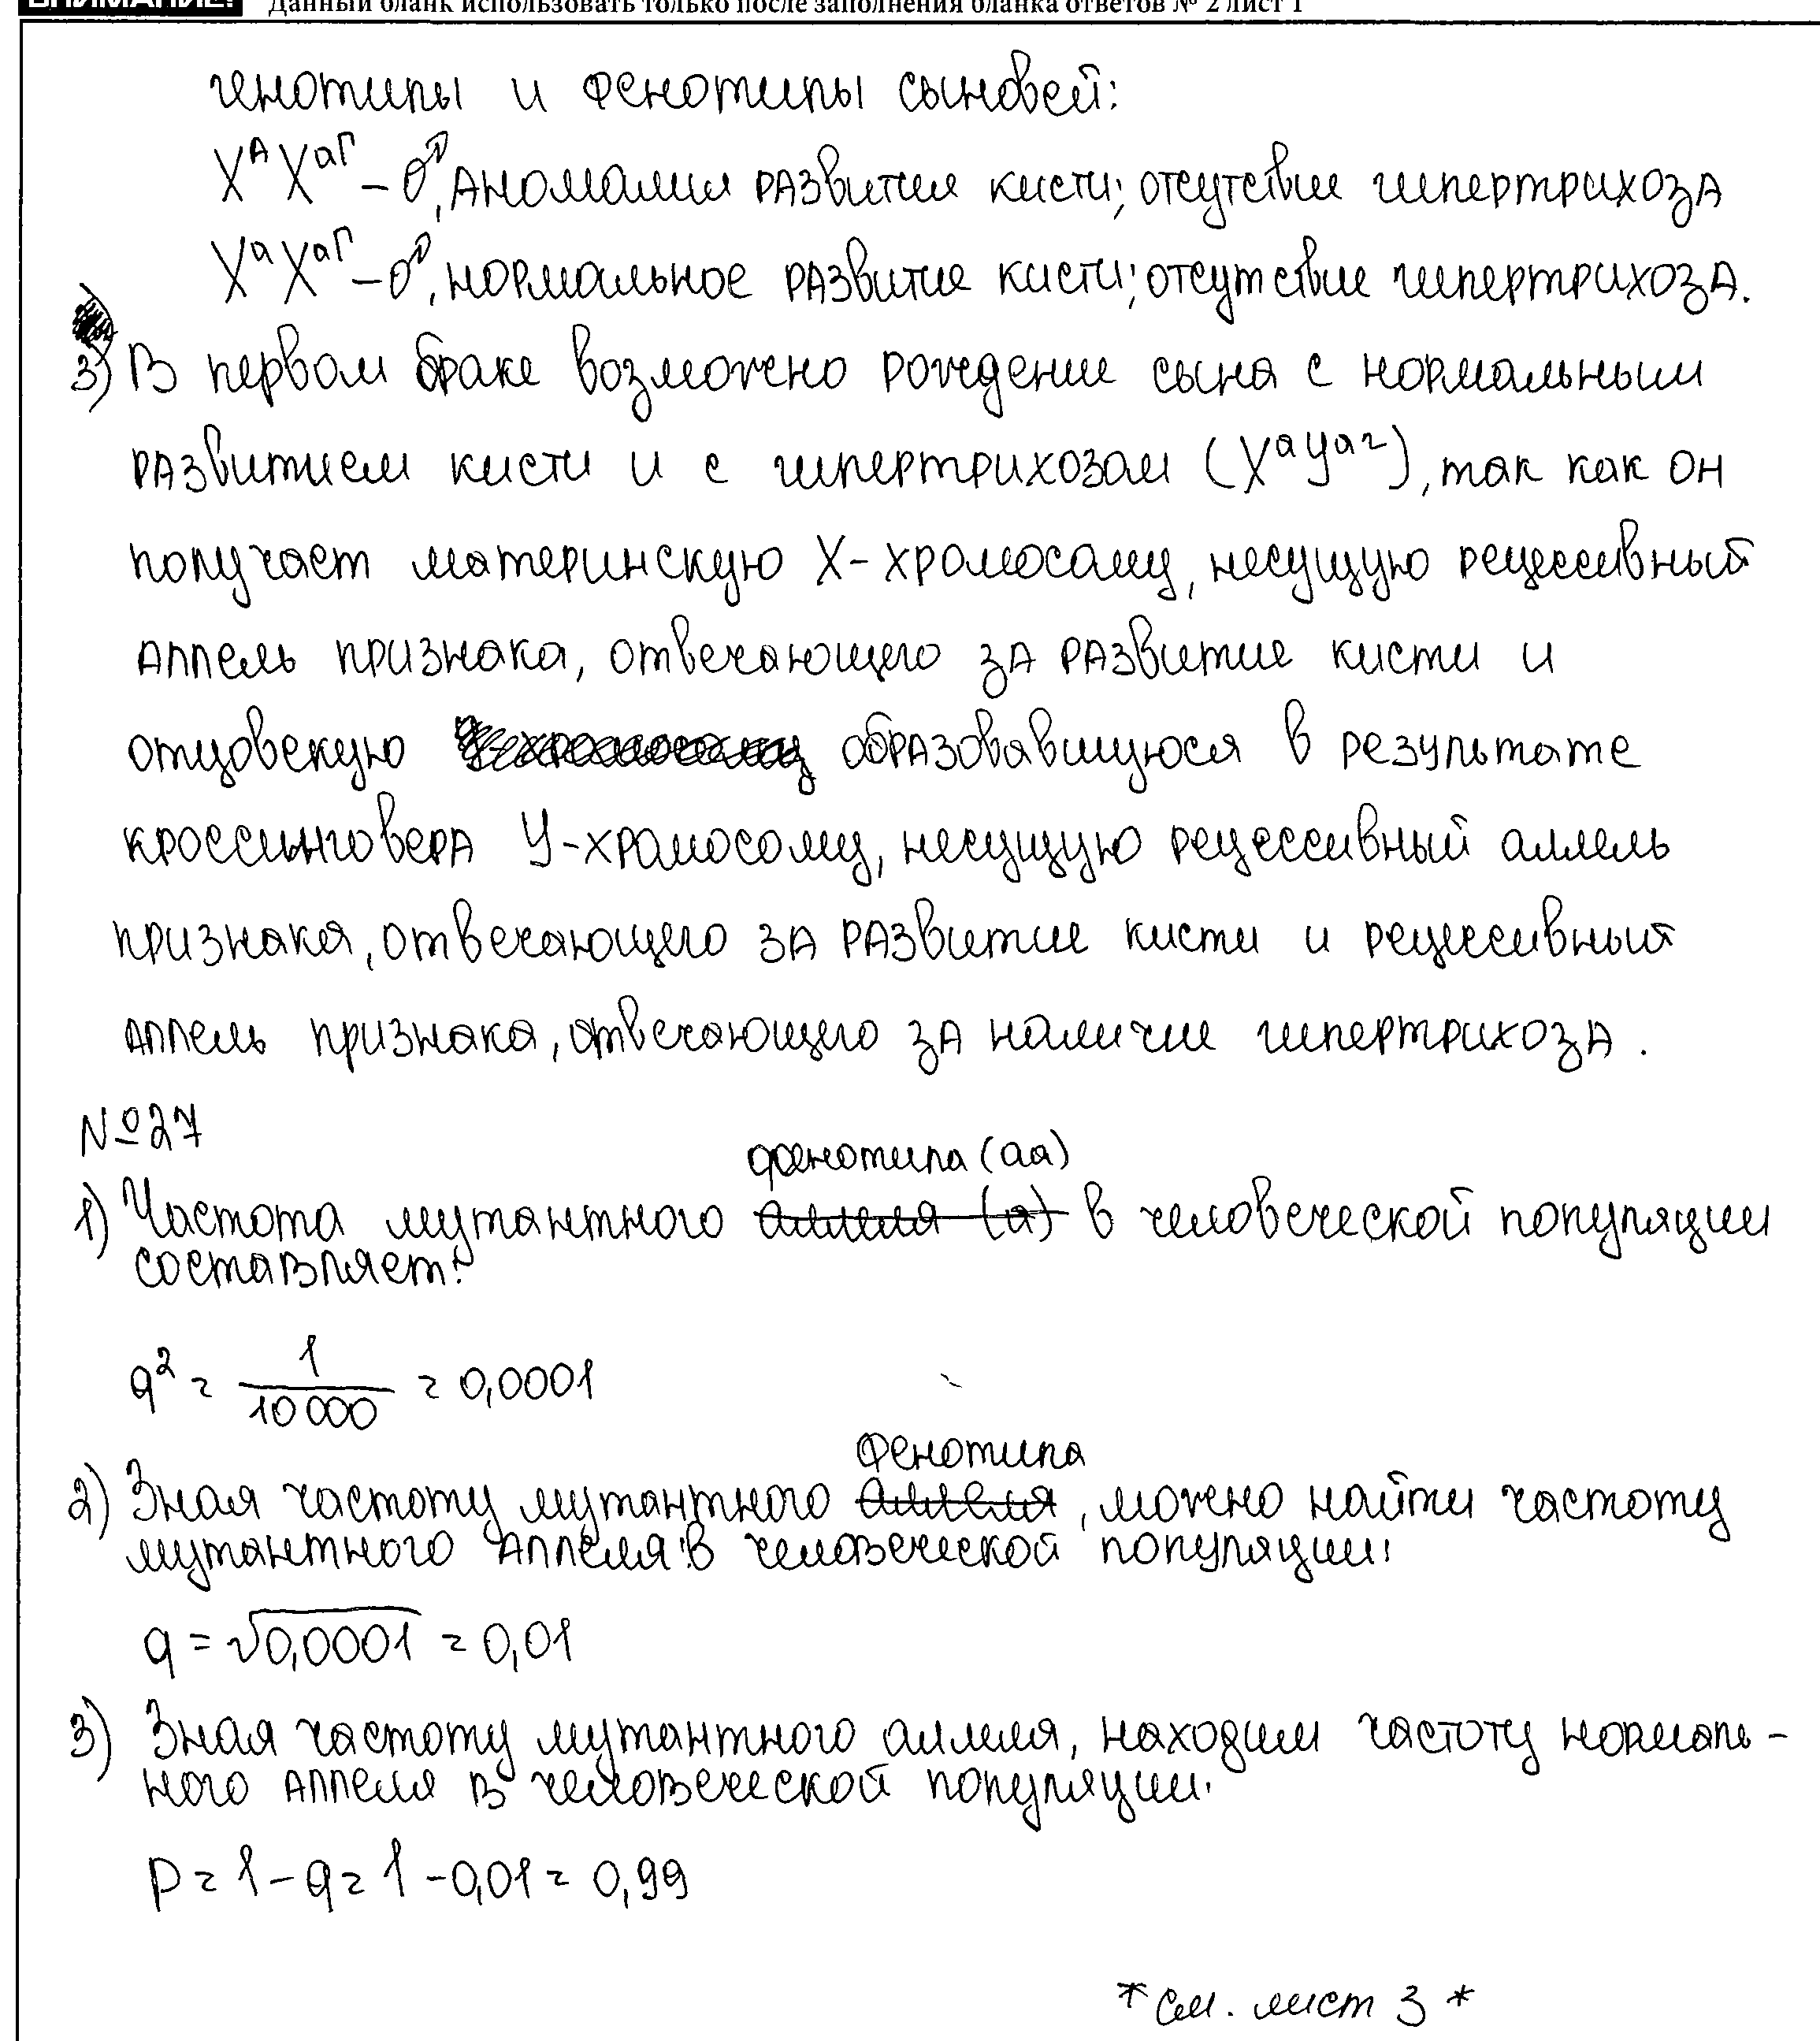 ВНИМАНИЕ! Данный бланк использовать только после заполнения бланка ответов № 2 лист 1
генотипы и фенотипы сыновей:
XᴬXᵃᴦ – ♂, аномалия развития кисти; отсутствие гипертрихоза
XᵃXᵃᴦ – ♂, нормальное развитие кисти; отсутствие гипертрихоза.
3) В первом браке возможно рождение сына с нормальным
развитием кисти и с гипертрихозом (XᵃYᵃᴦ), так как он
получает материнскую X-хромосому, несущую рецессивный
аллель признака, отвечающего за развитие кисти и
отцовскую образовавшуюся в результате
кроссинговера Y-хромосому, несущую рецессивный аллель
признака, отвечающего за развитие кисти и рецессивный
аллель признака, отвечающего за наличие гипертрихоза.
№27
фенотипа (aa)
1) Частота мутантного аллеля (a) в человеческой популяции
составляет:
q² = 1/10 000 = 0,0001
фенотипа
2) Зная частоту мутантного аллеля, можно найти частоту
мутантного аллеля в человеческой популяции:
q = √0,0001 = 0,01
3) Зная частоту мутантного аллеля, находим частоту нормаль-
ного аллеля в человеческой популяции:
p = 1 – q = 1 – 0,01 = 0,99
* См. лист 3 *